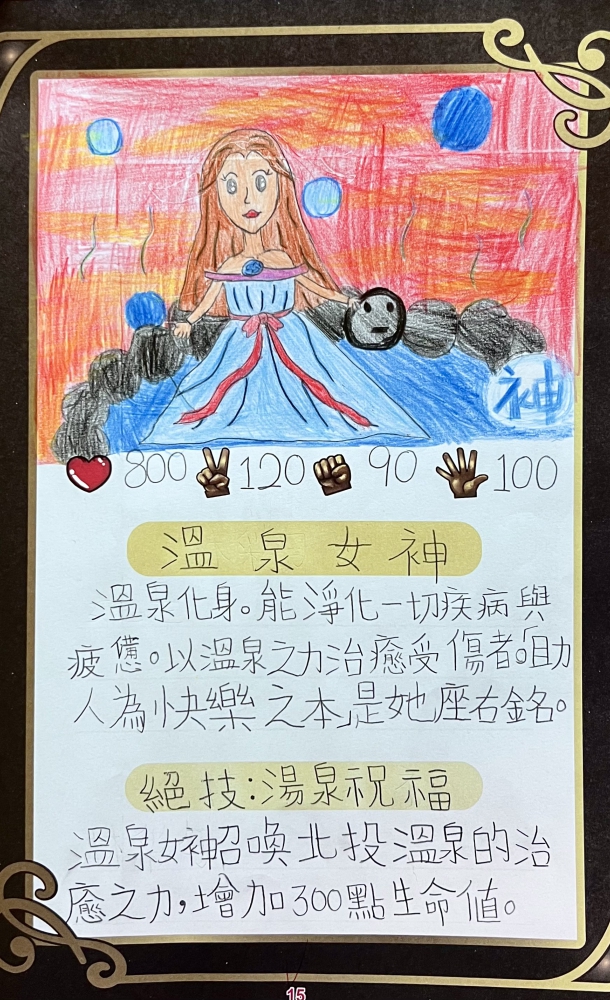 神
800 120 90 100
溫泉女神
溫泉化身。能淨化一切疾病與
疲憊。以溫泉之力治癒受傷者。「助
人為快樂之本」是她座右銘。
絕技:湯泉祝福
溫泉女神召喚北投溫泉的治
癒之力,增加300點生命值。
15